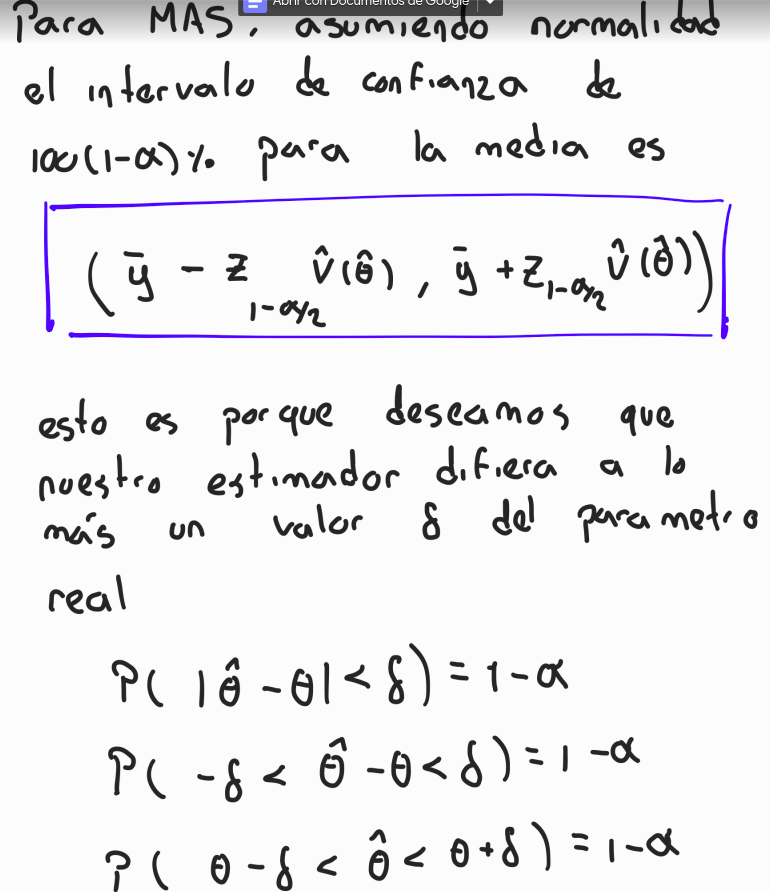 Abrir con Documentos de Google
Para MAS, asumiendo normalidad
el intervalo de confianza de
100(1-α)% para la media es
( ȳ - z_{1-α/2} V̂(θ̂) , ȳ + z_{1-α/2} V̂(θ̂) )
esto es porque deseamos que
nuestro estimador difiera a lo
más un valor δ del parametro
real
P( |θ̂ - θ| < δ ) = 1-α
P( -δ < θ̂ - θ < δ ) = 1-α
P( θ-δ < θ̂ < θ+δ ) = 1-α